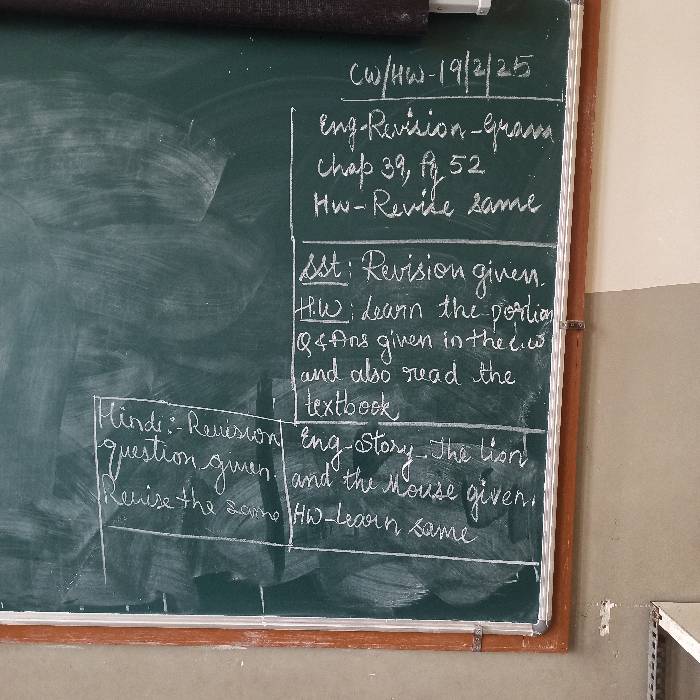 CW/HW-19/2/25
Eng-Revision-Gram
Chap 39, Pg 52
HW-Revise same
SSt: Revision given.
H.W: Learn the portion
Q & Ans given in the C.W
and also read the
textbook
Eng-Story-The Lion
and the Mouse given.
HW-Learn same
Hindi:- Revision
question given.
Revise the same